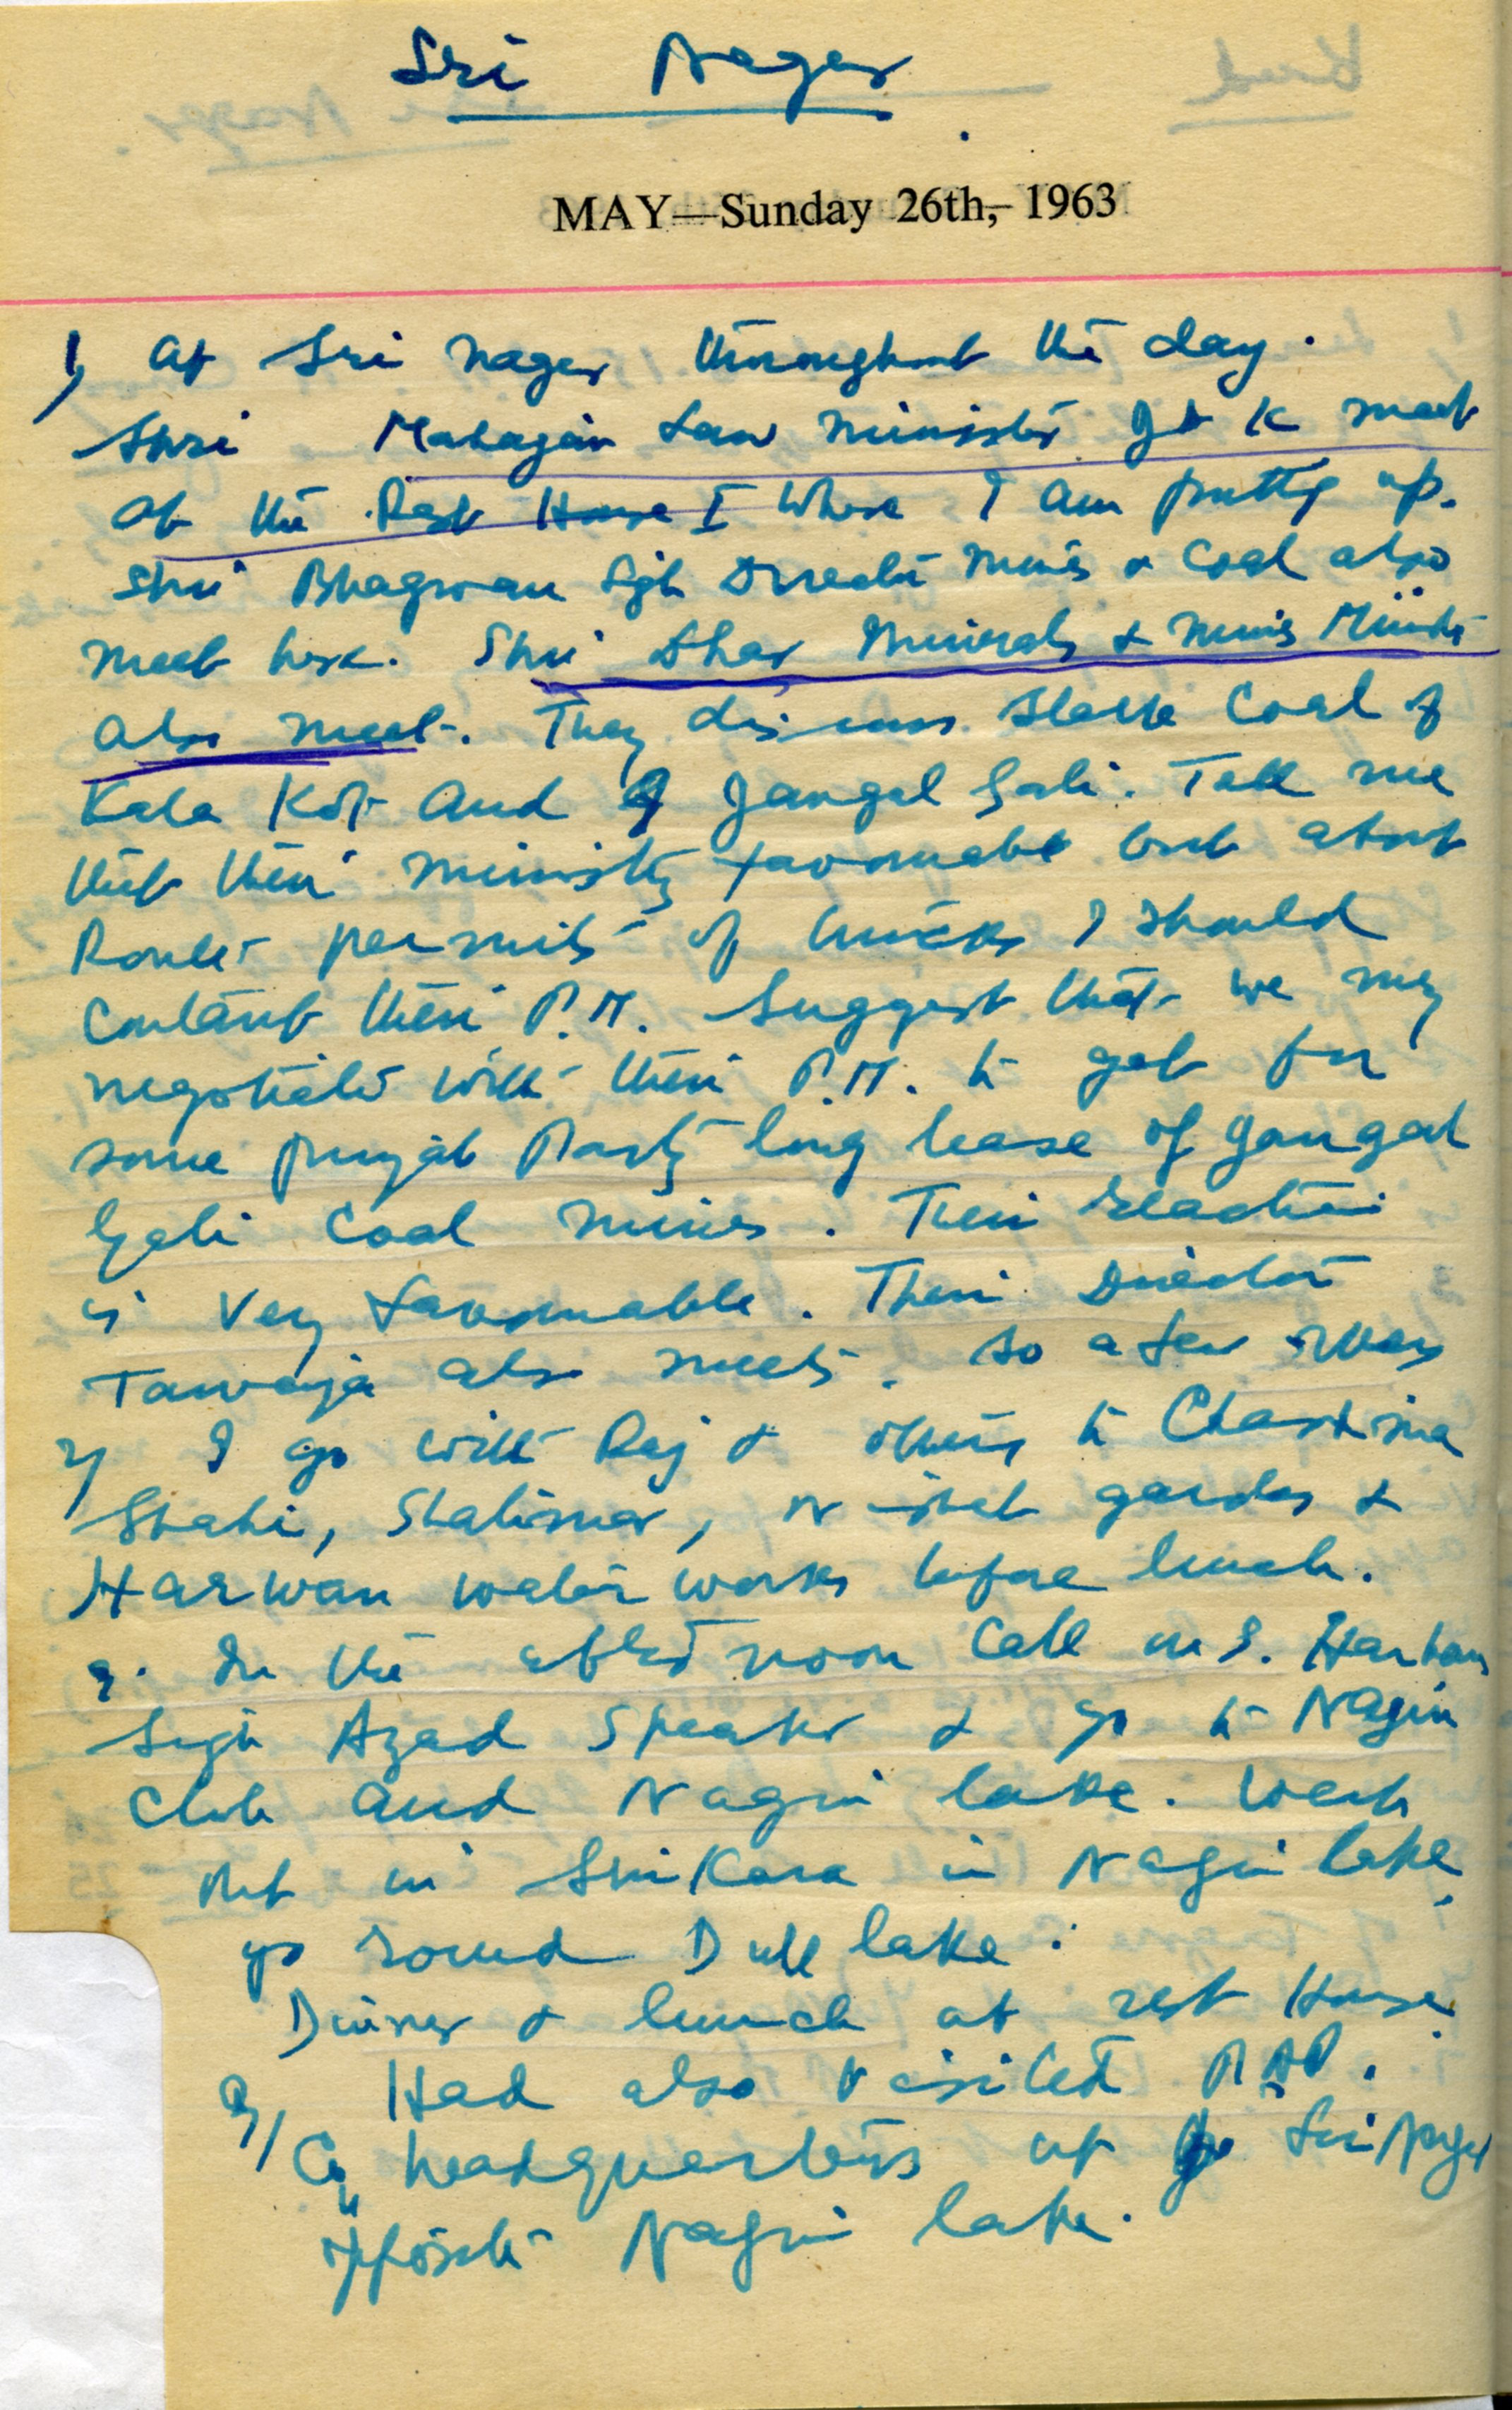 Sri Nager
MAY—Sunday 26th, 1963
1) At Sri Nager throughout the day.
Shri Mahajan Law Minister J & K meet
at the Rest House I where I am putting up.
Shri Bhagwan Sgh Director Mines & Coal also
meet here. Shri Dhar Minerals & Mines Minister
also meet. They discuss Slake Coal of
Kala Kot and of Jangal Gali. Tell me
that their ministry favourable but about
Route permits of trucks I should
contact their P.M. Suggest that we may
negotiate with their P.M. to get for
some Punjab Party long lease of Jangal
Gali Coal Mines. Their reaction
is very favourable. Their Director
Tanveja also meets. So a few
2) I go with Raj & others to Chashma
Shahi, Shalimar, Nishat gardes &
Harwan water works before lunch.
3. In the afternoon call on S. Harbans
Singh Azad Speaker & go to Nagin
Club and Nagin lake. Went
out in Shikara in Nagin lake,
go round Dull lake.
Dinner & lunch at rest House.
3/ Had also visited P.A.P.
headquarters at Sri Nager
opposite Nagin lake.